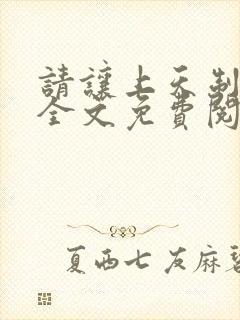 請讓上天制
全文免費閱
夏西七友麻碧